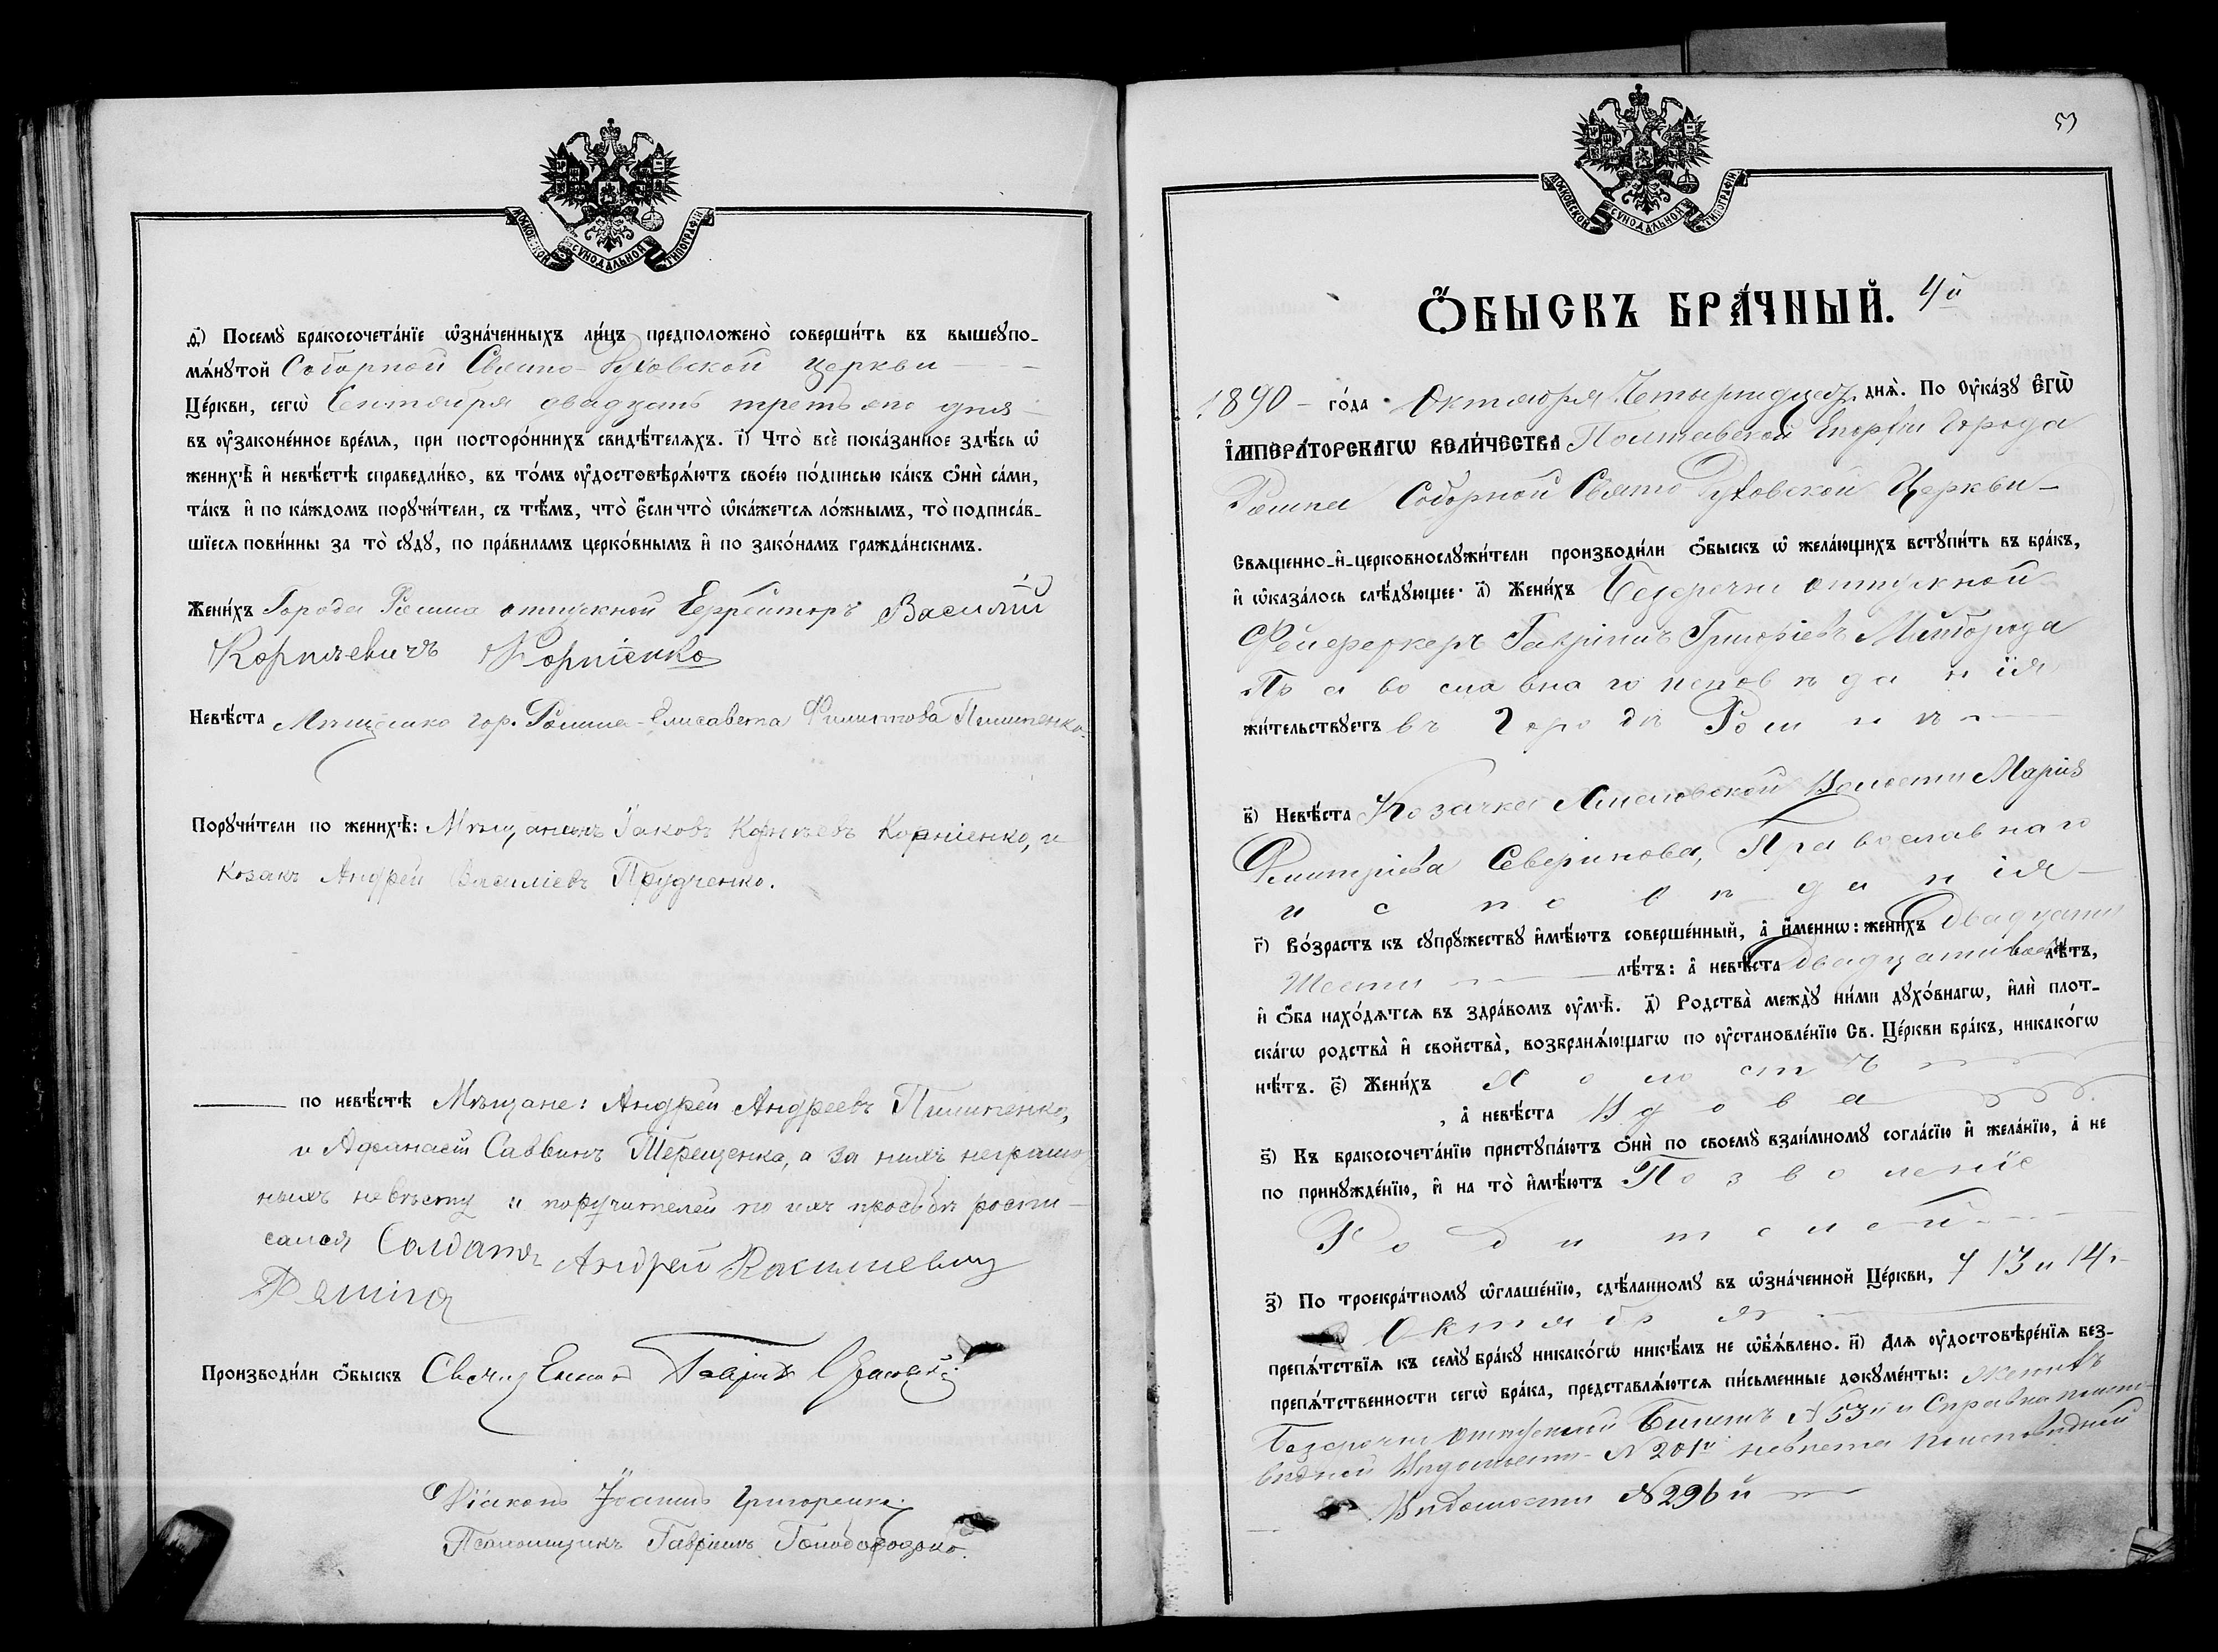 МОСКОВСКОЙ СѴНОДАЛЬНОЙ ТИПОГРАФІИ
ѳ҃) Посемꙋ̀ бракосочета́нїе ѡ҆зна́ченныхъ ли́цъ предположено̀ соверши́ть въ вышеꙋпо-
мѧ́нꙋтой Соборной Свято-Духовской церкви
Це́ркви, сегѡ̀ Сентября двадцать третьяго дня
въ ᲂу҆законе́нное вре́мѧ, при посторо́ннихъ свидѣ́телѧхъ. і҃) Что̀ всѐ пока́занное здѣ́сь ѡ҆
женихѣ̀ и҆ невѣ́стѣ справедли́во, въ то́мъ ᲂу҆достовѣрѧ́ютъ свое́ю по́дписью ка́къ ѻ҆нѝ са́ми,
та́къ и҆ по ка́ждомъ порꙋчи́тели, съ тѣ́мъ, что̀ є҆́сли что̀ ѡ҆ка́жетсѧ ло́жнымъ, то̀ подписа́в-
шїесѧ пови́нны за то̀ сꙋдꙋ̀, по пра́виламъ церко́внымъ и҆ по зако́намъ гражда́нскимъ.
Жени́хъ Города Ромна отпускной Ефрейторъ Василій
Корнѣевичъ Корніенко
Невѣ́ста Мѣщанка гор. Ромна Елисавета Филиппова Пилипенко
Порꙋчи́тели по женихѣ̀: Мѣщанинъ Іаковъ Корнѣевъ Корніенко, и
козакъ Андрей Василіевъ Прудченко.
по невѣ́стѣ Мѣщане: Андрей Андреевъ Пилипенко,
и Афанасій Саввинъ Терещенко, а за нихъ неграмот
ныхъ невѣсту и поручителей по ихъ просьбѣ роспи-
сался Солдатъ Андрей Василиевич
Производи́ли ѻ҆́быскъ
Діаконъ Іоаннъ Григоренко
Псаломщикъ Гавріилъ Голобородько.
53
МОСКОВСКОЙ СѴНОДАЛЬНОЙ ТИПОГРАФІИ
Ѻ҆́БЫСКЪ БРА́ЧНЫЙ. 4й
1890 го́да Октября Четырнадцат. днѧ̀. По ᲂу҆ка́зꙋ є҆гѡ̀
і҆мпера́торскагѡ вели́чества Полтавской Епархіи города
Ромна Соборной Свято Духовской Церкви
Свѧщенно-и҆-церковнослꙋжи́тели производи́ли ѻ҆́быскъ ѡ҆ жела́ющихъ встꙋпи́ть въ бра́къ,
и҆ ѡ҆каза́лось слѣ́дꙋющее: а҃) Жени́хъ Безсрочно отпускной
Фейерверкеръ Гавріилъ Григоріевъ
Православнаго исповѣданія
жи́тельствꙋетъ въ городѣ Ромнѣ
в҃) Невѣ́ста Козачка Волости Марія
Димитріева Северинова, Православнаго
исповѣданія
г҃) Во́зрастъ къ сꙋпрꙋ́жествꙋ и҆мѣ́ютъ соверше́нный, а҆ и҆́менно: жени́хъ Двадцати
Шести лѣ́тъ: а҆ невѣ́ста Двадцати лѣ́тъ,
и҆ ѻ҆́ба нахо́дѧтсѧ въ здра́вомъ ᲂу҆мѣ̀. д҃) Родства̀ междꙋ̀ ни́ми дꙋхо́внагѡ, и҆лѝ плот-
ска́гѡ родства̀ и҆ сво́йства, возбранѧ́ющагѡ по ᲂу҆становле́нїю Св. Це́ркви бра́къ, никако́гѡ
нѣ́тъ. є҃) Жени́хъ Холостъ
, а҆ невѣ́ста Вдова
ѕ҃) Къ бракосочета́нїю пристꙋпа́ютъ ѻ҆нѝ по своемꙋ̀ взаи́мномꙋ согла́сїю и҆ жела́нїю, а҆ не
по принꙋжде́нїю, и҆ на то̀ и҆мѣ́ютъ Позволеніе
Родителей
з҃) По троекра́тномꙋ ѡ҆глаше́нїю, сдѣ́ланномꙋ въ ѡ҆зна́ченной Це́ркви, 7 13 и 14го
Октября
препѧ́тствїѧ къ семꙋ̀ бра́кꙋ никако́гѡ никѣ́мъ не ѡ҆б̾ѧ́влено. и҃) Длѧ ᲂу҆достовѣре́нїѧ без-
препѧ́тственности сегѡ̀ бра́ка, представлѧ́ютсѧ пи́сьменные докꙋме́нты: жениха
Безсрочно отпускной Билетъ № 53й и Справка исповѣ-
дной Вѣдомости № 201й невѣста исповѣдной
Вѣдомости № 296й